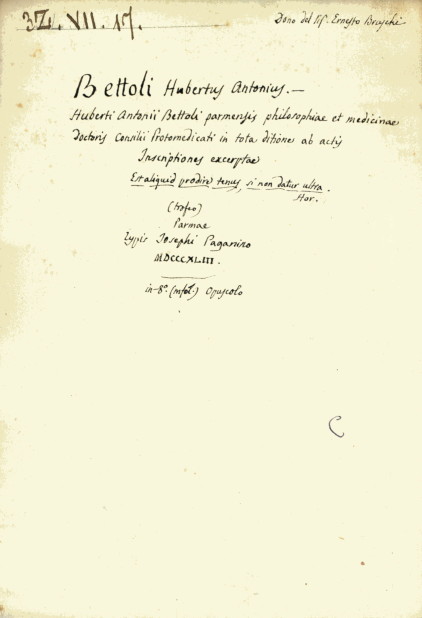 3Z. VII. 17.
Dono del Sig. Ernesto Braschi
Bettoli Hubertus Antonius. —
Huberti Antonii Bettoli parmensis philosophiae et medicinae
Doctoris Consilii Protomedicati in tota ditione ab actis
Inscriptiones excerptae
Est aliquid prodire tenus, si non datur ultra.
Hor.
(trofeo)
Parmae
typis Josephi Paganino
MDCCCXLIII.
in-8°. Opuscolo
C